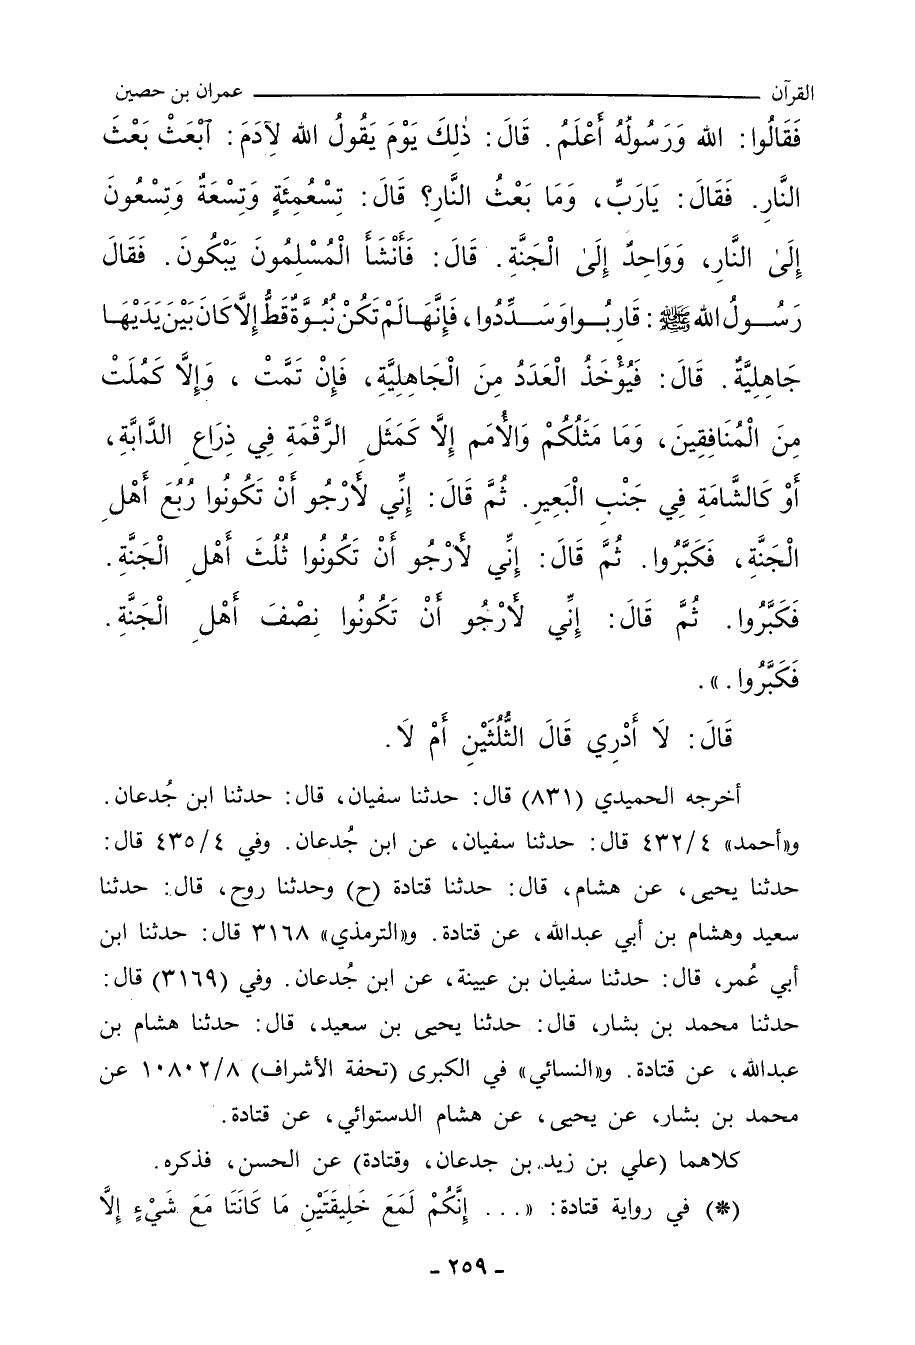 القرآن ـــــــــــــــــــــ عمران بن حصين
فَقَالُوا: الله وَرَسُولُهُ أَعْلَمُ. قَالَ: ذٰلِكَ يَوْمَ يَقُولُ الله لِآدَمَ: ٱبْعَثْ بَعْثَ
النَّارِ. فَقَالَ: يَارَبِّ، وَمَا بَعْثُ النَّارِ؟ قَالَ: تِسْعُمِئَةٍ وَتِسْعَةٌ وَتِسْعُونَ
إِلَىٰ النَّارِ، وَوَاحِدٌ إِلَىٰ الْجَنَّةِ. قَالَ: فَأَنْشَأَ الْمُسْلِمُونَ يَبْكُونَ. فَقَالَ
رَسُولُ الله ﷺ: قَارِبُوا وَسَدِّدُوا، فَإِنَّهَا لَمْ تَكُنْ نُبُوَّةٌ قَطُّ إِلَّا كَانَ بَيْنَ يَدَيْهَا
جَاهِلِيَّةٌ. قَالَ: فَيُؤْخَذُ الْعَدَدُ مِنَ الْجَاهِلِيَّةِ، فَإِنْ تَمَّتْ ، وَإِلَّا كَمُلَتْ
مِنَ الْمُنَافِقِينَ، وَمَا مَثَلُكُمْ وَالْأُمَمِ إِلَّا كَمَثَلِ الرَّقْمَةِ فِي ذِرَاعِ الدَّابَّةِ،
أَوْ كَالشَّامَةِ فِي جَنْبِ الْبَعِيرِ. ثُمَّ قَالَ: إِنِّي لَأَرْجُو أَنْ تَكُونُوا رُبُعَ أَهْلِ
الْجَنَّةِ، فَكَبَّرُوا. ثُمَّ قَالَ: إِنِّي لَأَرْجُو أَنْ تَكُونُوا ثُلُثَ أَهْلِ الْجَنَّةِ.
فَكَبَّرُوا. ثُمَّ قَالَ: إِنِّي لَأَرْجُو أَنْ تَكُونُوا نِصْفَ أَهْلِ الْجَنَّةِ.
فَكَبَّرُوا.».
قَالَ: لَا أَدْرِي قَالَ الثُّلُثَيْنِ أَمْ لَا.
أخرجه الحميدي (٨٣١) قال: حدثنا سفيان، قال: حدثنا ابن جُدعان.
و«أحمد» ٤٣٢/٤ قال: حدثنا سفيان، عن ابن جُدعان. وفي ٤٣٥/٤ قال:
حدثنا يحيى، عن هشام، قال: حدثنا قتادة (ح) وحدثنا روح، قال: حدثنا
سعيد وهشام بن أبي عبدالله، عن قتادة. و«الترمذي» ٣١٦٨ قال: حدثنا ابن
أبي عُمر، قال: حدثنا سفيان بن عيينة، عن ابن جُدعان. وفي (٣١٦٩) قال:
حدثنا محمد بن بشار، قال: حدثنا يحيى بن سعيد، قال: حدثنا هشام بن
عبدالله، عن قتادة. و«النسائي» في الكبرى (تحفة الأشراف) ١٠٨٠٢/٨ عن
محمد بن بشار، عن يحيى، عن هشام الدستوائي، عن قتادة.
كلاهما (علي بن زيد بن جدعان، وقتادة) عن الحسن، فذكره.
(*) في رواية قتادة: «... إِنَّكُمْ لَمَعَ خَلِيقَتَيْنِ مَا كَانَتَا مَعَ شَيْءٍ إِلَّا
- ٢٥٩ -